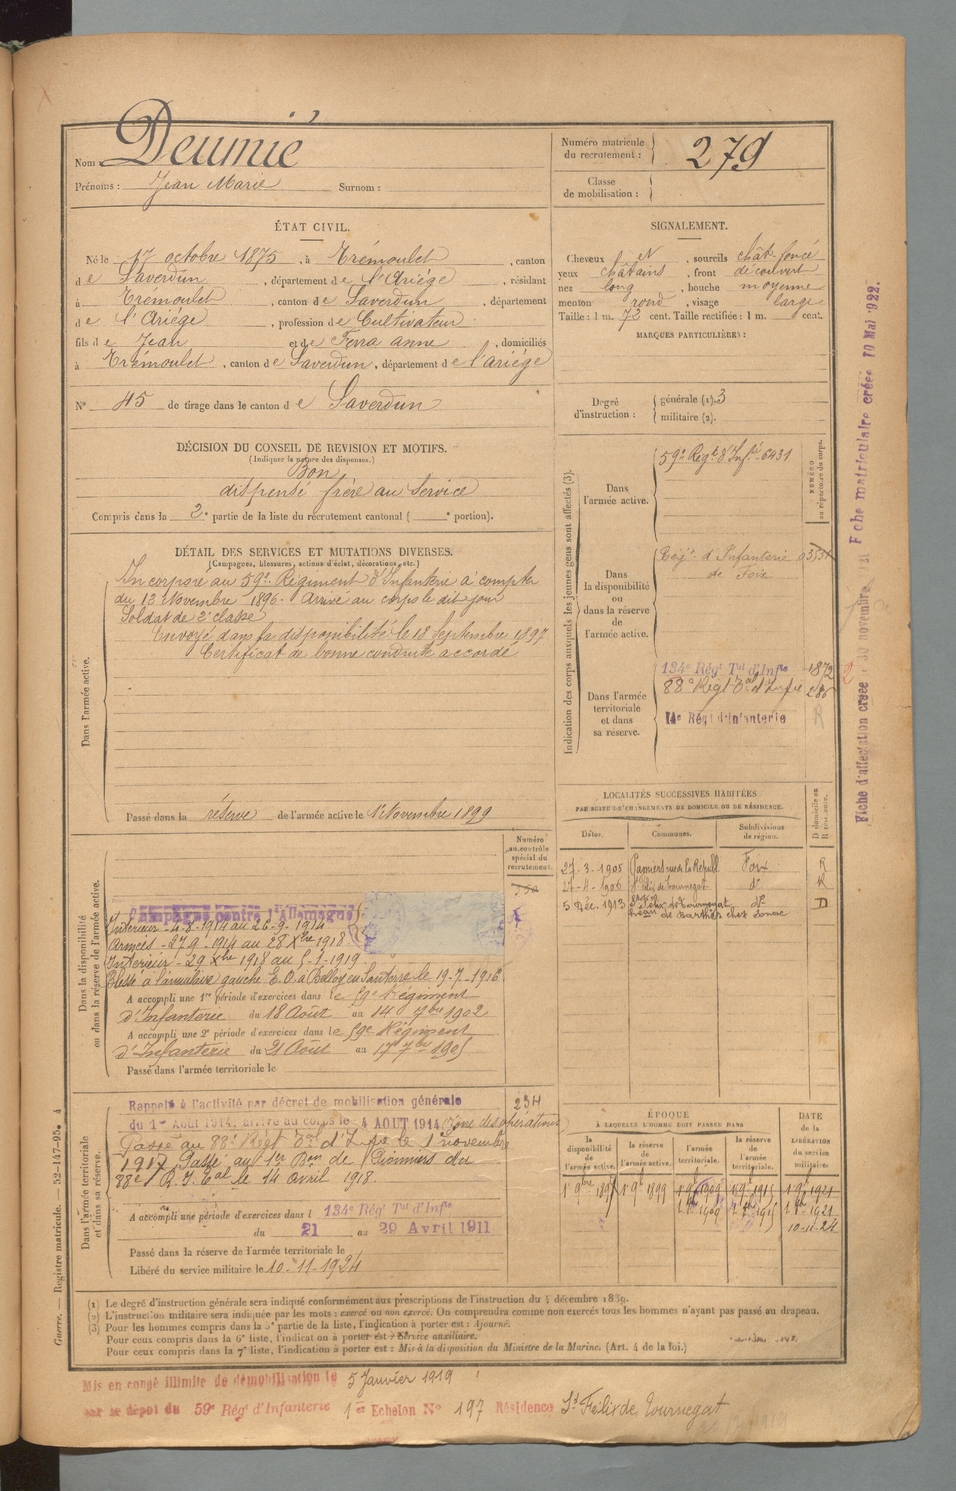 Nom : Deumié
Prénoms : Jean Marie Surnom :
Numéro matricule du recrutement : 279
Classe de mobilisation :
ÉTAT CIVIL.
Né le 17 octobre 1875, à Trémoulet, canton
de Saverdun, département de l'Ariége, résidant
à Trémoulet, canton de Saverdun, département
de l'Ariége, profession de Cultivateur
fils de Jean et de Ferra anne, domiciliés
à Trémoulet, canton de Saverdun, département de l'ariége
N° 45 de tirage dans le canton de Saverdun
SIGNALEMENT.
Cheveux et, sourcils chât-foncé
yeux châtains, front découvert
nez long, bouche moyenne
menton rond, visage large
Taille : 1 m. 72 cent. Taille rectifiée : 1 m. cent.
MARQUES PARTICULIÈRES :
Degré d'instruction : générale (1). 3
militaire (2).
DÉCISION DU CONSEIL DE REVISION ET MOTIFS.
(Indiquer la nature des dispenses.)
Bon
dispensé frère au Service
Compris dans la 2e partie de la liste du recrutement cantonal ( e portion).
DÉTAIL DES SERVICES ET MUTATIONS DIVERSES.
(Campagnes, blessures, actions d'éclat, décorations, etc.)
Dans l'armée active.
Incorporé au 59e Régiment d'Infanterie à compter
du 13 Novembre 1896. Arrivé au corps le dit jour
Soldat de 2e classe
Envoyé dans la disponibilité le 18 Septembre 1897
Certificat de bonne conduite accordé
Passé dans la réserve de l'armée active le 1er Novembre 1899
Indication des corps auxquels les jeunes gens sont affectés (3).
NUMÉRO au répertoire du corps.
Dans l'armée active.
59e Regt d'Infie 6431
Dans la disponibilité ou dans la réserve de l'armée active.
Régt d'Infanterie
de Foix
Dans l'armée territoriale et dans sa réserve.
134e Régt Tal d'Infie 1872
88e Regt Tal d'Infie
14e Régt d'Infanterie R
LOCALITÉS SUCCESSIVES HABITÉES
PAR SUITE DE CHANGEMENTS DE DOMICILE OU DE RÉSIDENCE.
Dates. Communes. Subdivisions de région. D domicile ou R résidence.
27-3-1905 Pamiers rue de la Républ Foix R
1906 St Félix de tournegat do R
5 Déc. 1913 St Félix de Tournegat do D
Dans la disponibilité ou dans la réserve de l'armée active.
Numéro au contrôle spécial du recrutement.
Campagne contre l'Allemagne
Intérieur - 4-8-1914 au 26-9-1914
Armées - 27-9-1914 au 28 Xbre 1918
Intérieur - 29 Xbre 1918 au 5-1-1919
Blessé à l'annulaire gauche E.O. à Belloy en Santerre le 19-7-1916
A accompli une 1re période d'exercices dans le 59e Régiment
d'Infanterie du 18 Août au 14 7bre 1902
A accompli une 2e période d'exercices dans le 59e Régiment
d'Infanterie du 21 Août au 17 7bre 1905
Passé dans l'armée territoriale le
Dans l'armée territoriale et dans sa réserve.
234
Rappelé à l'activité par décret de mobilisation générale
du 1er Août 1914, arrivé au corps le 4 AOUT 1914 (Zone des opérations)
Passé au 88e Regt Tal d'Infie le 1er novembre
1917 Passé au 1er Bon de Pionniers du
88e R.I. Tal le 14 avril 1918.
A accompli une période d'exercices dans l 134e Régt Tal d'Infie
du 21 au 29 Avril 1911
Passé dans la réserve de l'armée territoriale le
Libéré du service militaire le 10-11-1924
ÉPOQUE
À LAQUELLE L'HOMME DOIT PASSER DANS
la disponibilité de l'armée active. la réserve de l'armée active. l'armée territoriale. la réserve de l'armée territoriale.
DATE de la LIBÉRATION du service militaire.
1er 9bre 1897 1er 9bre 1899 1er 9bre 1909 1er 9bre 1915 1er 9bre 1921
10-11-24
(1) Le degré d'instruction générale sera indiqué conformément aux prescriptions de l'instruction du 4 décembre 1889.
(2) L'instruction militaire sera indiquée par les mots : exercé ou non exercé. On comprendra comme non exercés tous les hommes n'ayant pas passé au drapeau.
(3) Pour les hommes compris dans la 5e partie de la liste, l'indication à porter est : Ajourné.
Pour ceux compris dans la 6e liste, l'indication à porter est : Service auxiliaire.
Pour ceux compris dans la 7e liste, l'indication à porter est : Mis à la disposition du Ministre de la Marine. (Art. 4 de la loi.)
Mis en congé illimité de démobilisation le 5 Janvier 1919
par le dépôt du 59e Régt d'Infanterie 1er Echelon N° 197 Résidence St Félix de Tournegat
Guerre. — Registre matricule. — 52-147-95. 4
Fiche d'affectation créée 30 novembre
Fiche matriculaire créée 10 Mai 1922.